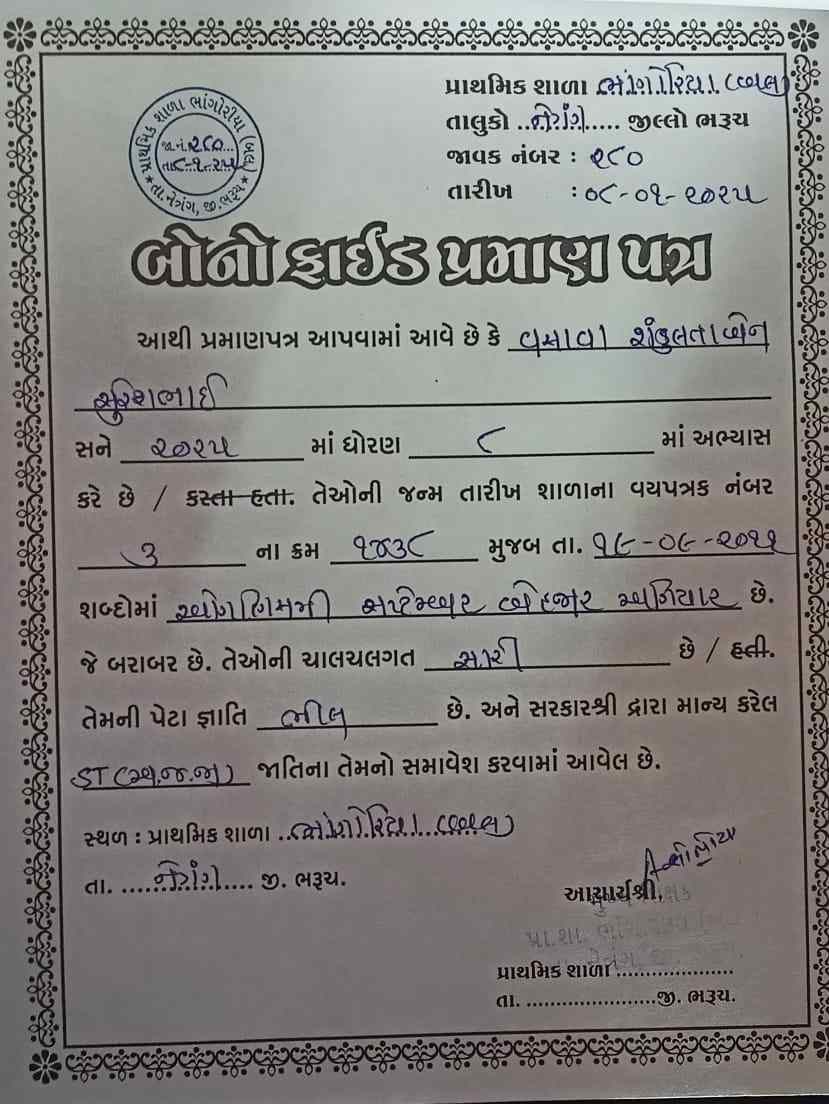 પ્રાથમિક શાળા ભાંગોરીયા (બલ)
જા.નં. ૨૮૦
તા. ૮-૧-૨૫
તા. નેત્રંગ, જી. ભરૂચ
પ્રાથમિક શાળા ભાંગોરિયા (બલ)
તાલુકો ..નેત્રંગ..... જીલ્લો ભરૂચ
જાવક નંબર : ૨૮૦
તારીખ : ૦૮-૦૧-૨૦૨૫
બોનોફાઈડ પ્રમાણ પત્ર
આથી પ્રમાણપત્ર આપવામાં આવે છે કે વસાવા શંકુલતાબેન
સુરેશભાઈ
સને ૨૦૨૫ માં ધોરણ ૮ માં અભ્યાસ
કરે છે / કરતા હતા. તેઓની જન્મ તારીખ શાળાના વયપત્રક નંબર
૩ ના ક્રમ ૧૪૩૮ મુજબ તા. ૧૯-૦૯-૨૦૧૧
શબ્દોમાં ઓગણિસમી સપ્ટેમ્બર બે હજાર અગિયાર છે.
જે બરાબર છે. તેઓની ચાલચલગત સારી છે / હતી.
તેમની પેટા જ્ઞાતિ ભીલ છે. અને સરકારશ્રી દ્વારા માન્ય કરેલ
ST (અ.જ.જા) જાતિના તેમનો સમાવેશ કરવામાં આવેલ છે.
સ્થળ : પ્રાથમિક શાળા ..ભાંગોરિયા..(બલ)
તા. ......નેત્રંગ.... જી. ભરૂચ.
આચાર્યશ્રી,
પ્રા.શા.
પ્રાથમિક શાળા ....................
તા. ......................જી. ભરૂચ.